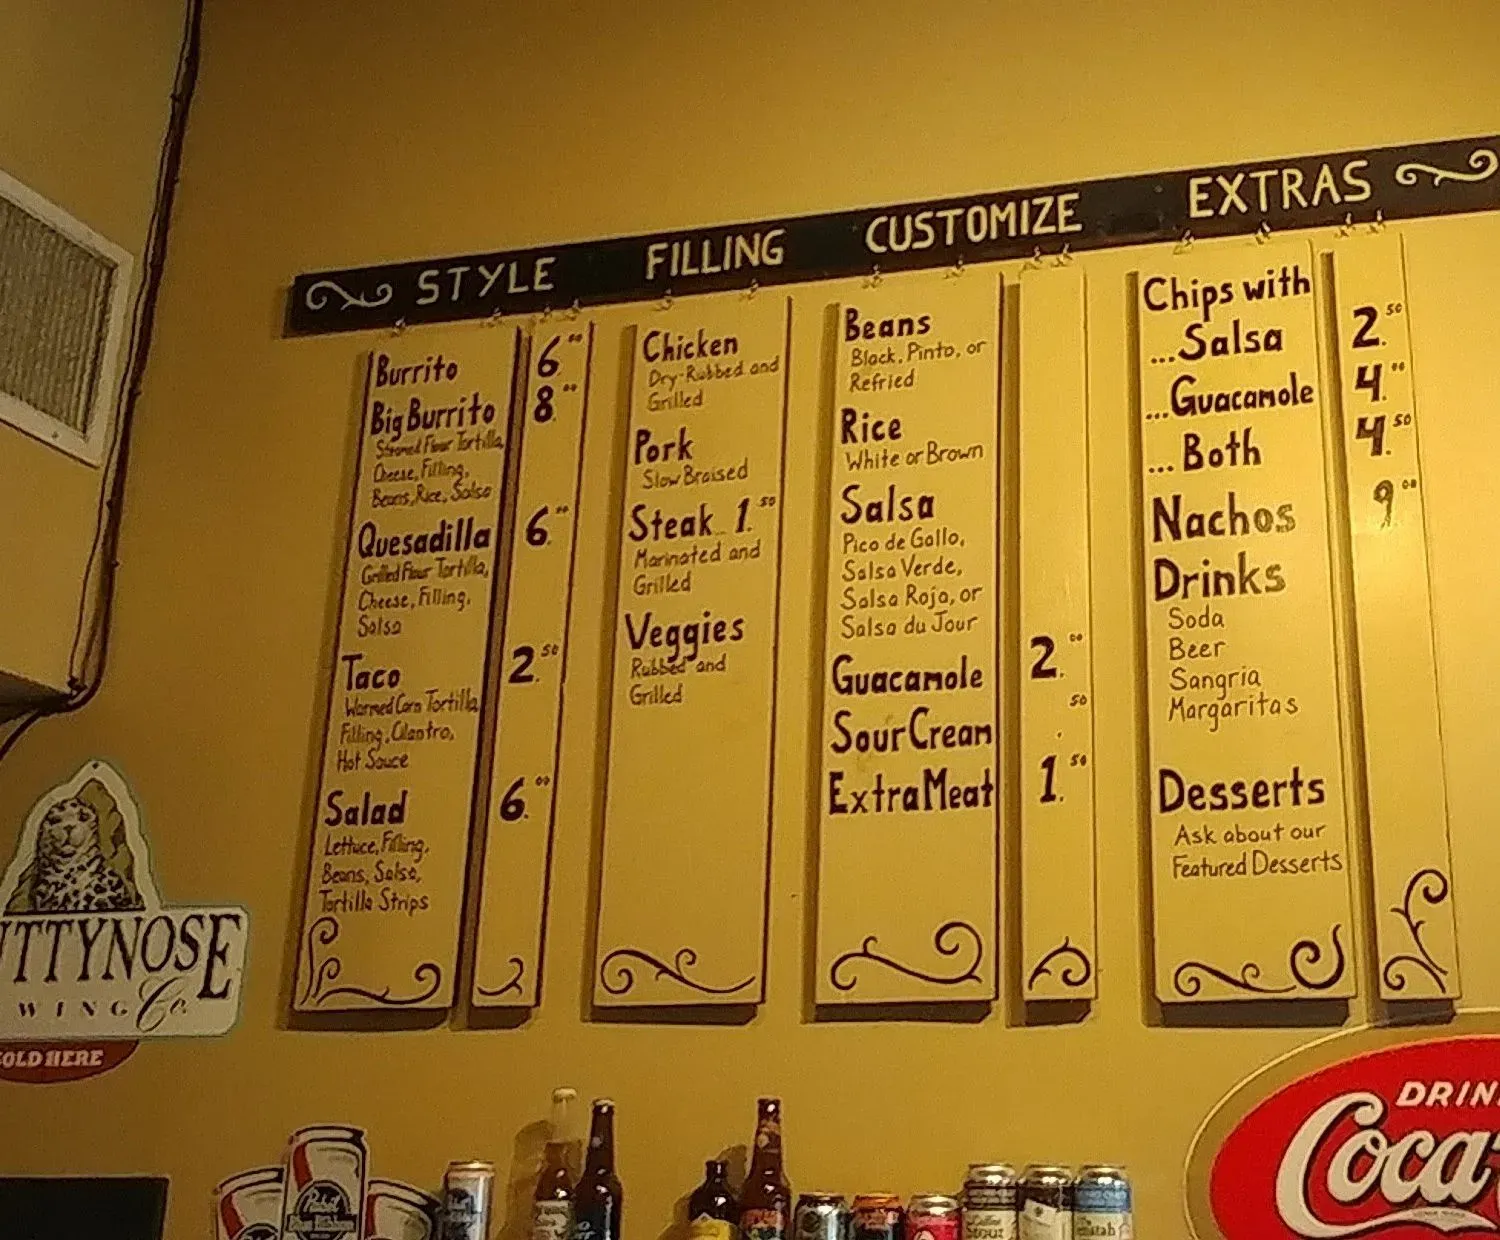 STYLE FILLING CUSTOMIZE EXTRAS
Burrito 6.00
Big Burrito 8.00
Steamed Flour Tortilla,
Cheese, Filling,
Beans, Rice, Salsa
Quesadilla 6.00
Grilled Flour Tortilla,
Cheese, Filling,
Salsa
Taco 2.50
Warmed Corn Tortilla,
Filling, Cilantro,
Hot Sauce
Salad 6.00
Lettuce, Filling,
Beans, Salsa,
Tortilla Strips
Chicken
Dry-Rubbed and
Grilled
Pork
Slow Braised
Steak 1.50
Marinated and
Grilled
Veggies
Rubbed and
Grilled
Beans
Black, Pinto, or
Refried
Rice
White or Brown
Salsa
Pico de Gallo,
Salsa Verde,
Salsa Roja, or
Salsa du Jour
Guacamole 2.00
Sour Cream .50
Extra Meat 1.50
Chips with
...Salsa 2.50
...Guacamole 4.00
...Both 4.50
Nachos 9.00
Drinks
Soda
Beer
Sangria
Margaritas
Desserts
Ask about our
Featured Desserts
UTTYNOSE
WING Co.
OLD HERE
DRIN
Coca
Pabst
Stout